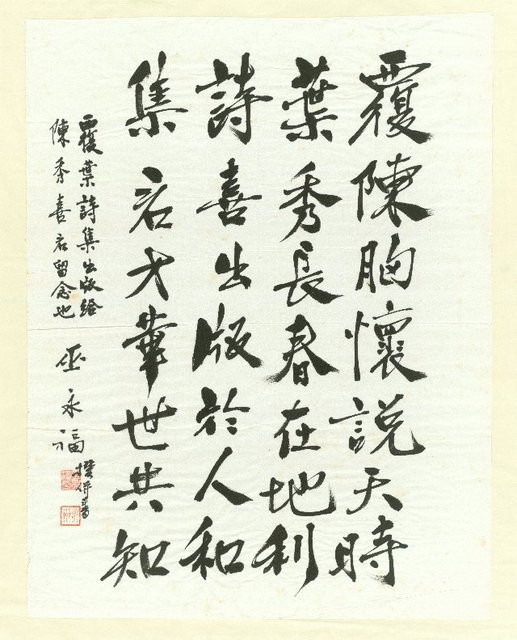 覆陳胸懷說天時
葉秀長春在地利
詩喜出版於人和
集君才華世共知
覆葉詩集出版給
陳秀喜君留念也
巫永福
撰併書